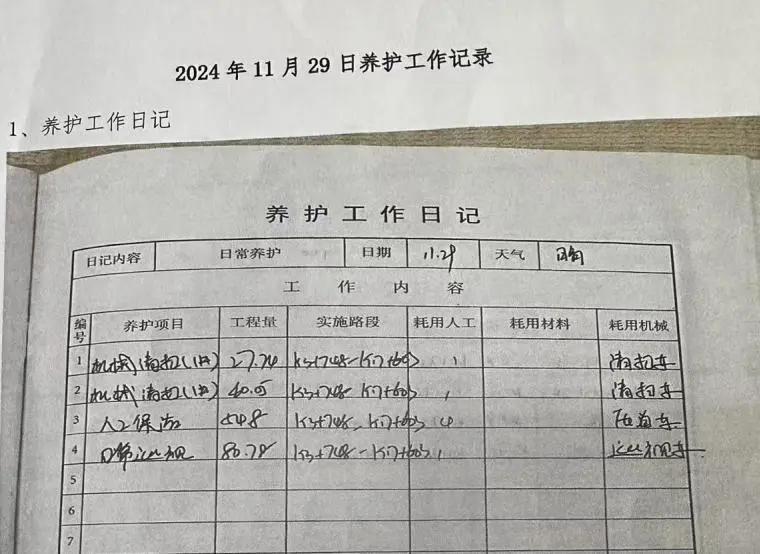 2024 年 11 月 29 日养护工作记录
1、养护工作日记
养护工作日记
日记内容 日常养护 日期 11.29 天气
工作内容
编号 养护项目 工程量 实施路段 耗用人工 耗用材料 耗用机械
1 机械清扫 27.74 K3+748-K17+603 1 清扫车
2 机械清扫 40.05 K3+748-K17+603 1 清扫车
3 人工保洁 K3+748-K17+603 4
4 日常巡视 80.78 K3+748-K17+603 1 巡视车
5
6
7